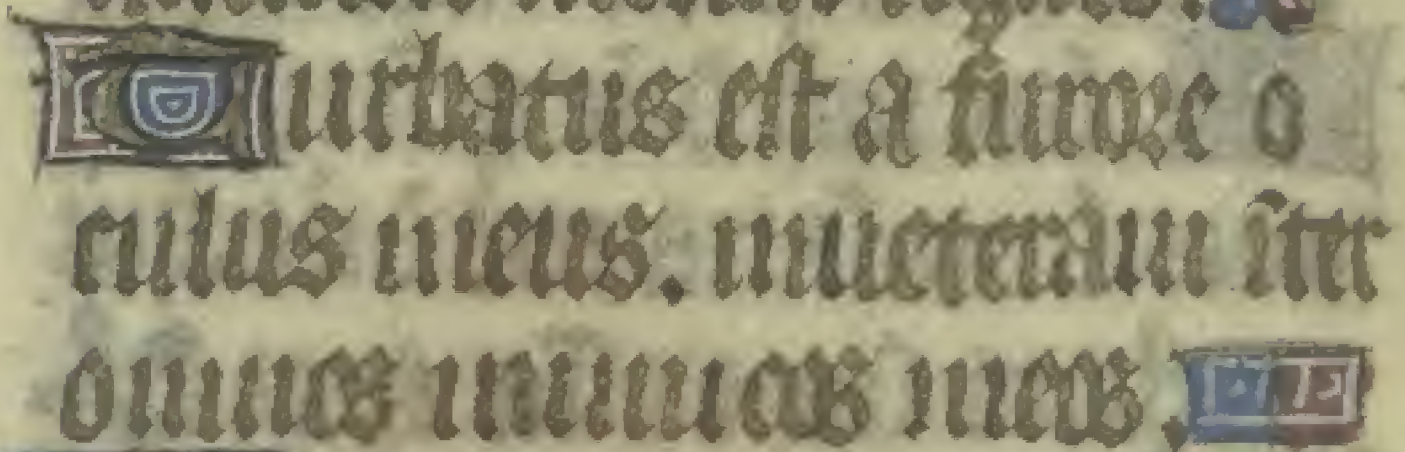 Turbatus est a furore o
culus meus. inueteraui īter
omnes inimicos meos.